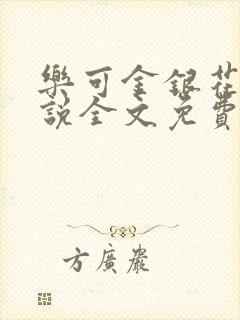 樂可金銀花
說全文免費
方廣嚴